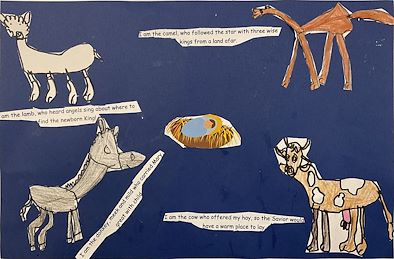 I am the camel, who followed the star with three wise
kings from a land afar.
am the lamb, who heard angels sing about where to
find the newborn King!
I am the donkey meek and mild who carried Mary
great with child
I am the cow who offered my hay, so the Savior would
have a warm place to lay